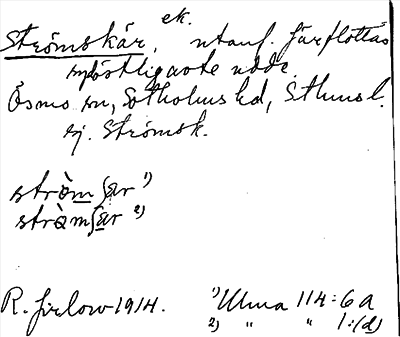 ek.
Strömskär, utanf. Järflottas
sydöstligaste udde.
Ösmo sn, Sotholms hd, Sthmsl.
ej. Strömsk.
ström ʃær 1)
strömʃær 2)
R. Jirlow 1914. 1) Ulma 114:6 a
2) " " 1:(d)